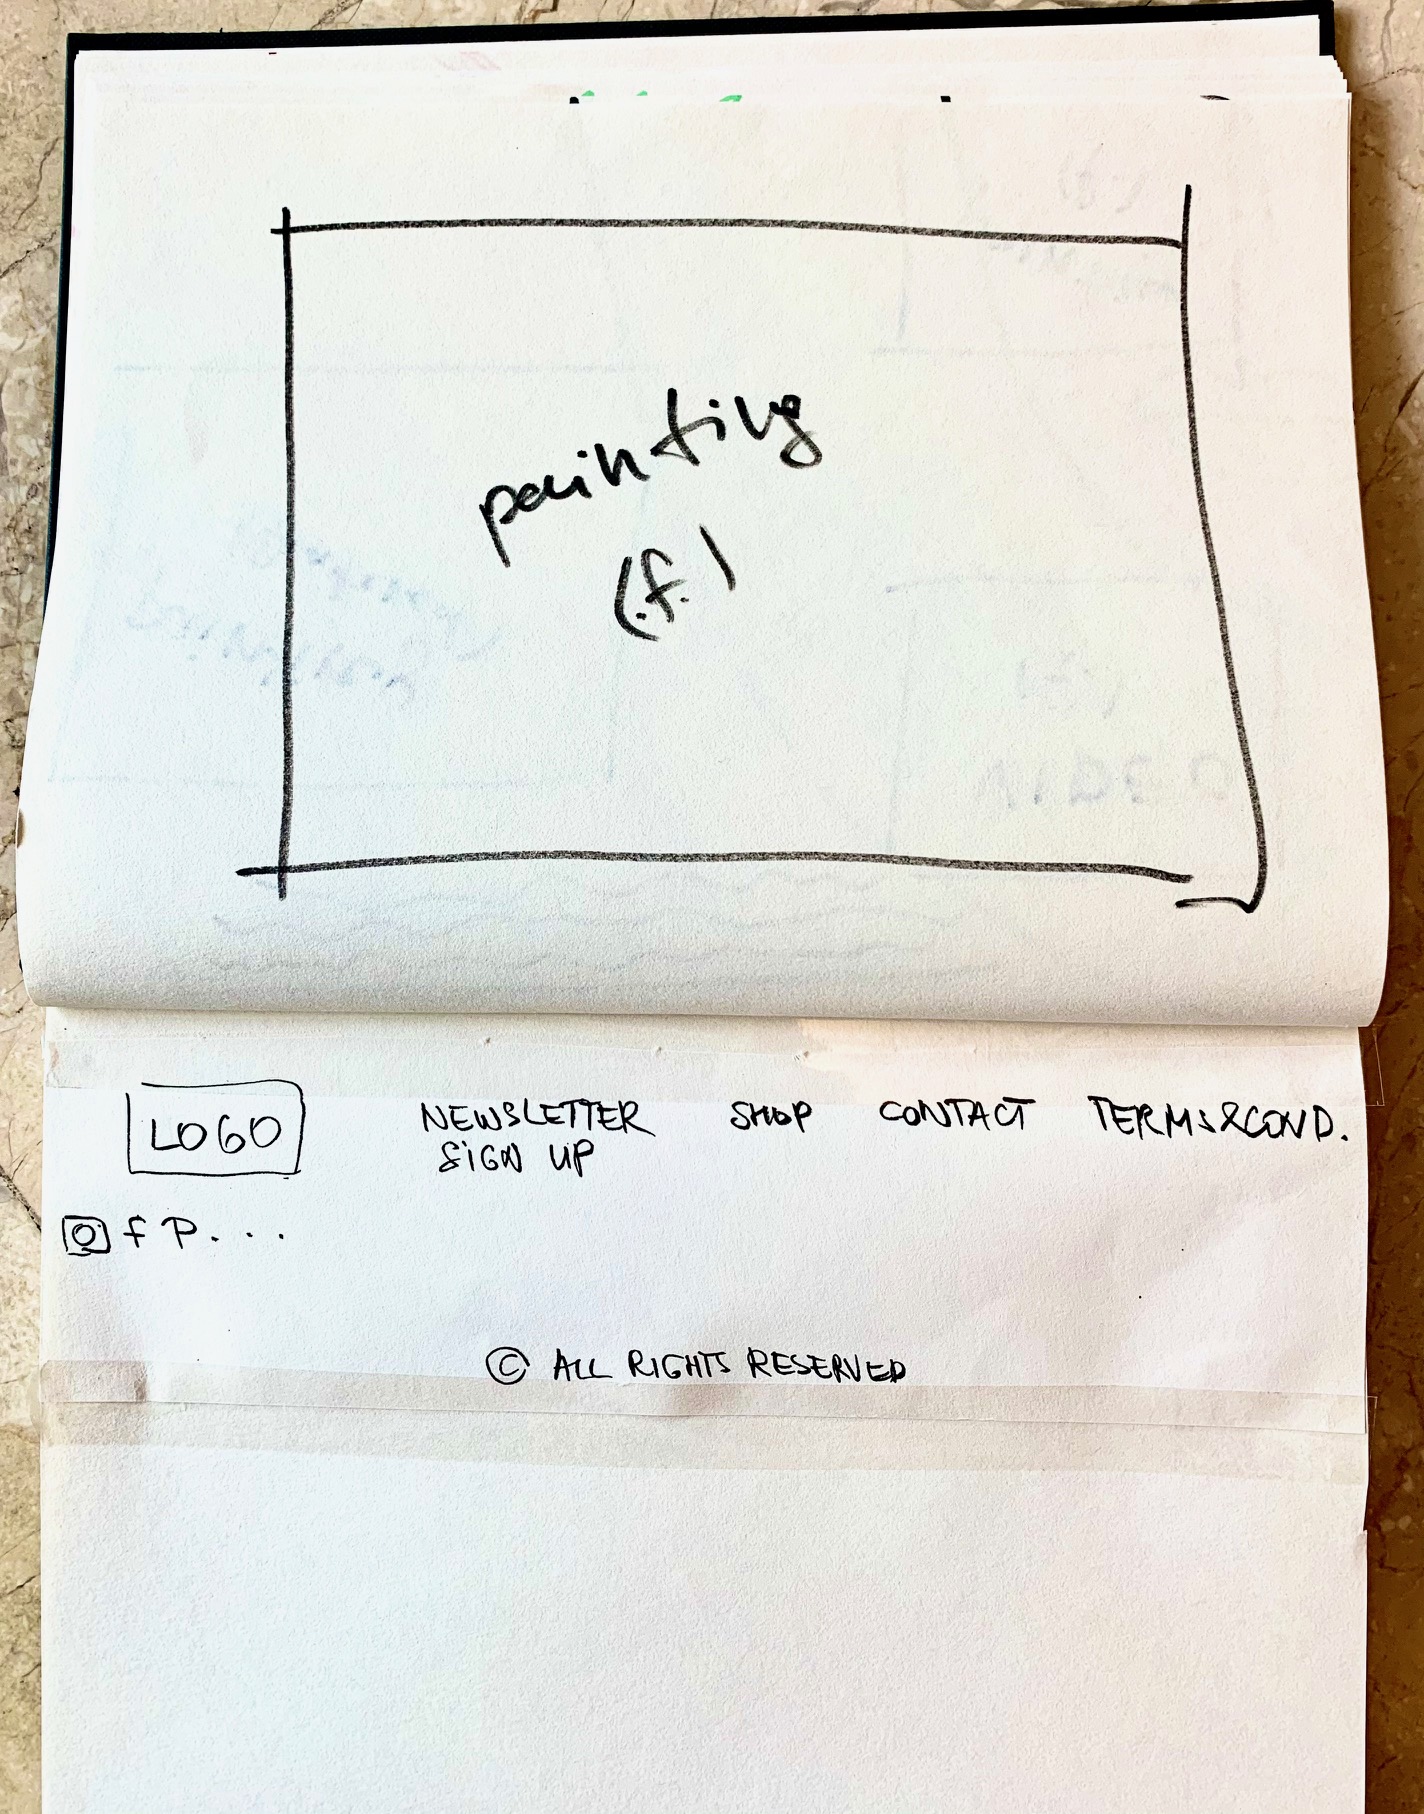 painting
(.f.)
LOGO
NEWSLETTER SHOP CONTACT TERMS&COND.
SIGN UP
f P...
© ALL RIGHTS RESERVED